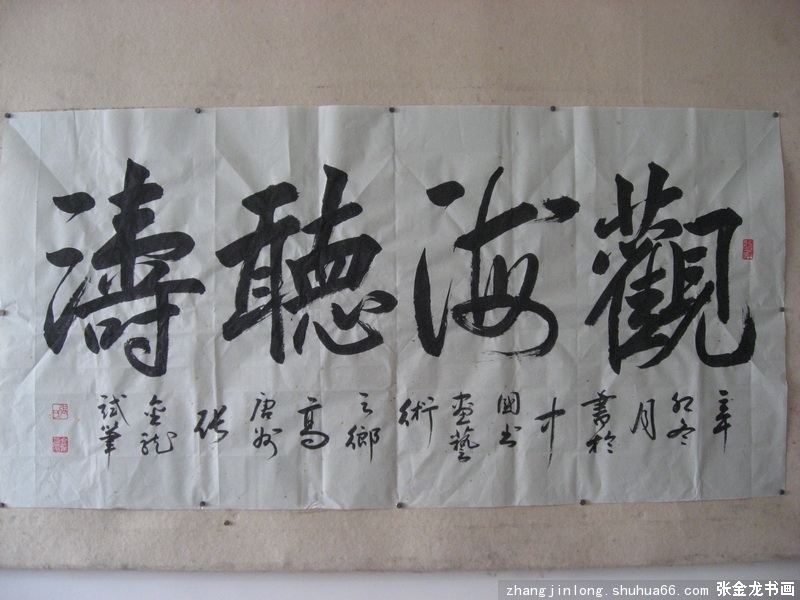 觀海聽濤
辛卯冬月書於中國书畫藝術之鄉高唐州张金龍試筆
zhangjinlong.shuhua66.com 张金龙书画